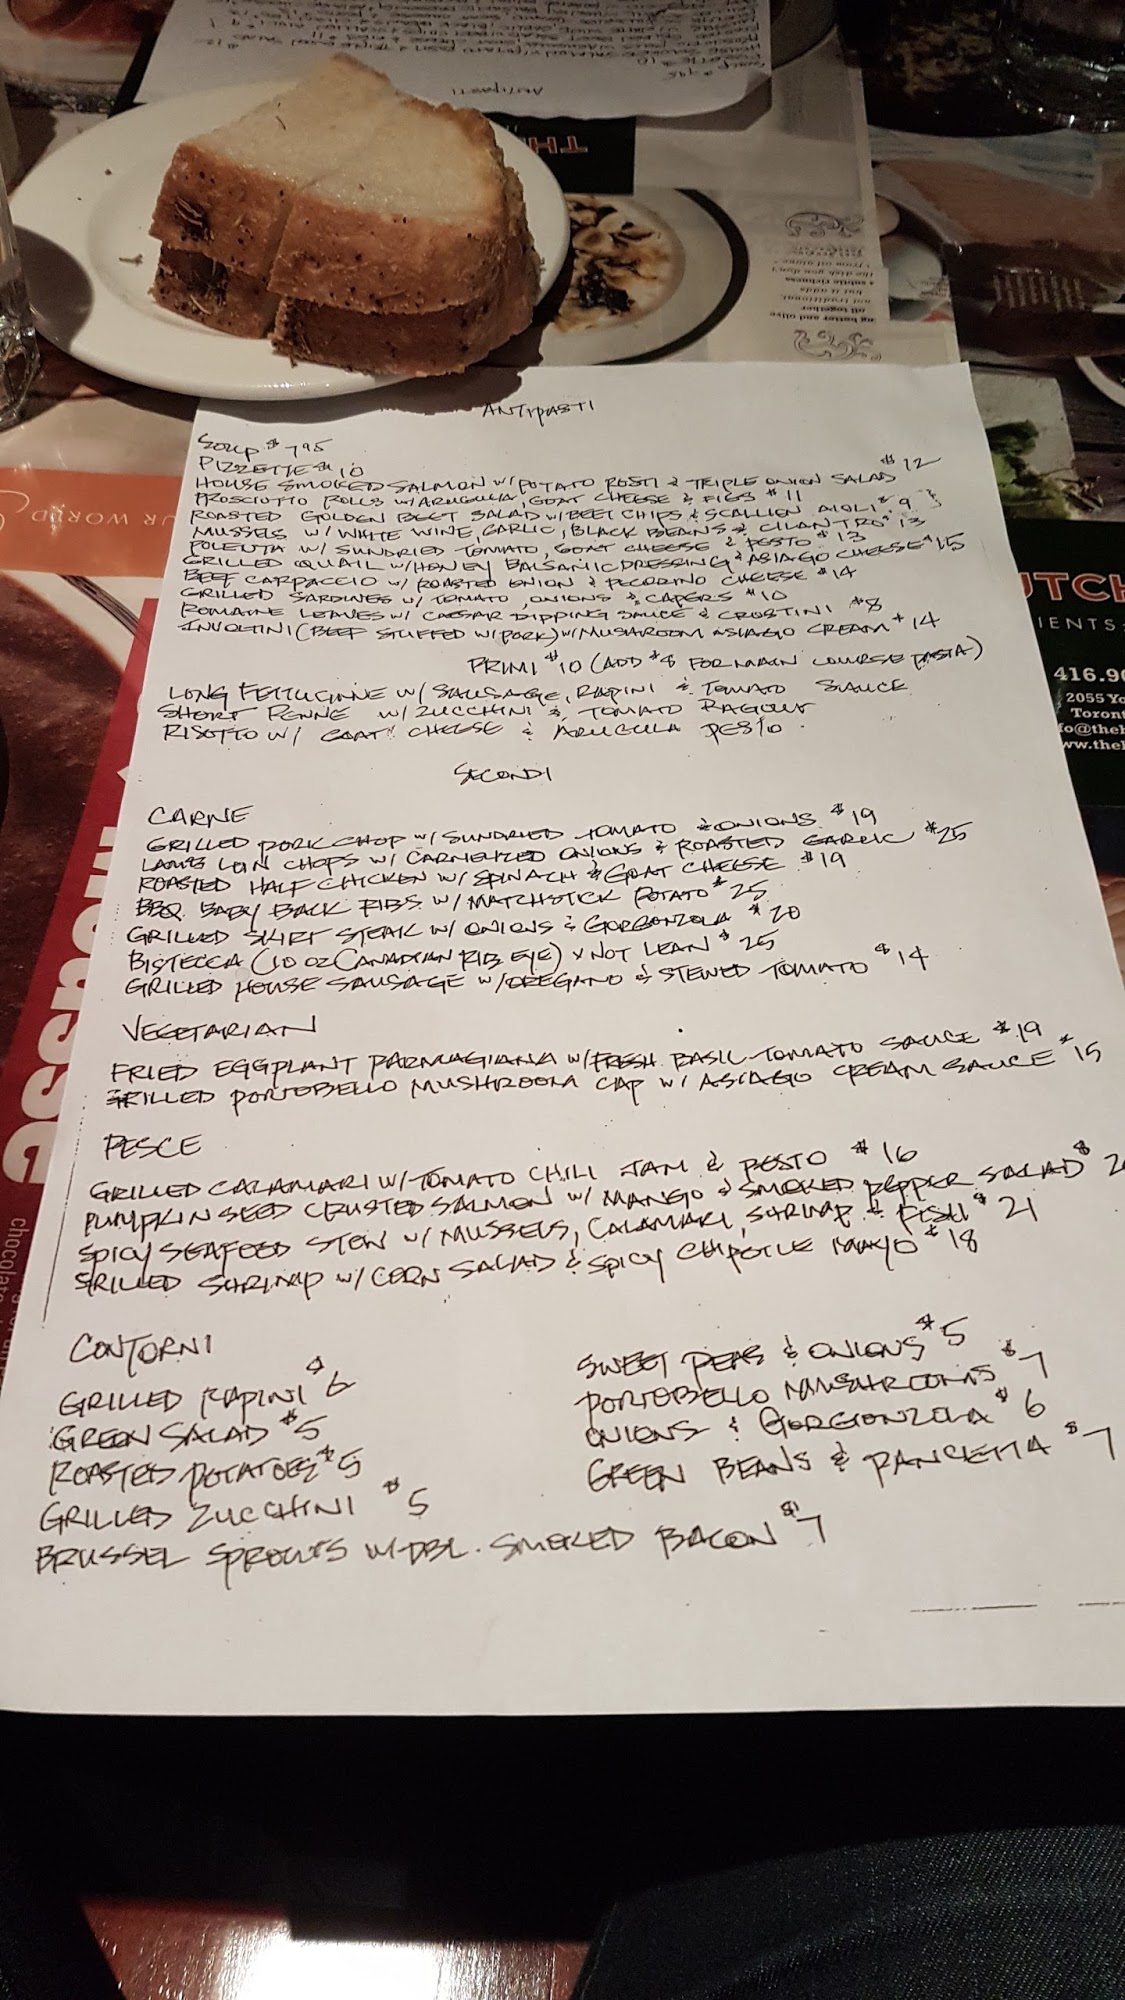 ANTIPASTI
SOUP $7.95
PIZZETTE $10
HOUSE SMOKED SALMON W/ POTATO ROSTI & TRIPLE ONION SALAD $12
PROSCIUTTO ROLLS W/ ARUGULA, GOAT CHEESE & FIGS $11
ROASTED GOLDEN BEET SALAD W/ BEET CHIPS & SCALLION AIOLI $9
MUSSELS W/ WHITE WINE, GARLIC, BLACK BEANS & CILANTRO $13
POLENTA W/ SUNDRIED TOMATO, GOAT CHEESE & PESTO $13
GRILLED QUAIL W/ HONEY BALSAMIC DRESSING & ASIAGO CHEESE $15
BEEF CARPACCIO W/ ROASTED ONION & PECORINO CHEESE $14
GRILLED SARDINES W/ TOMATO, ONIONS & CAPERS $10
ROMAINE LEAVES W/ CAESAR DIPPING SAUCE & CROSTINI $8
INVOLTINI (BEEF STUFFED W/ PORK) W/ MUSHROOM ASIAGO CREAM $14
PRIMI $10 (ADD $8 FOR MAIN COURSE PASTA)
LONG FETTUCINNE W/ SAUSAGE, RAPINI & TOMATO SAUCE
SHORT PENNE W/ ZUCCHINI & TOMATO RAGOUT
RISOTTO W/ GOAT CHEESE & ARUGULA PESTO
SECONDI
CARNE
GRILLED PORK CHOP W/ SUNDRIED TOMATO & ONIONS $19
LAMB LOIN CHOPS W/ CARMELIZED ONIONS & ROASTED GARLIC $25
ROASTED HALF CHICKEN W/ SPINACH & GOAT CHEESE $19
BBQ BABY BACK RIBS W/ MATCHSTICK POTATO $25
GRILLED SKIRT STEAK W/ ONIONS & GORGONZOLA $20
BISTECCA (10 OZ CANADIAN RIB EYE) X NOT LEAN $25
GRILLED HOUSE SAUSAGE W/ OREGANO & STEWED TOMATO $14
VEGETARIAN
FRIED EGGPLANT PARMAGIANA W/ FRESH BASIL TOMATO SAUCE $19
GRILLED PORTOBELLO MUSHROOM CAP W/ ASIAGO CREAM SAUCE $15
PESCE
GRILLED CALAMARI W/ TOMATO CHILI JAM & PESTO $16
PUMPKIN SEED CRUSTED SALMON W/ MANGO & SMOKED PEPPER SALAD $
SPICY SEAFOOD STEW W/ MUSSELS, CALAMARI, SHRIMP & FISH $21
GRILLED SHRIMP W/ CORN SALAD & SPICY CHIPOTLE MAYO $18
CONTORNI
GRILLED RAPINI $6
GREEN SALAD $5
ROASTED POTATOES $5
GRILLED ZUCCHINI $5
BRUSSEL SPROUTS W/ DBL. SMOKED BACON $7
SWEET PEAS & ONIONS $5
PORTOBELLO MUSHROOMS $7
ONIONS & GORGONZOLA $6
GREEN BEANS & PANCETTA $7
UTCH
IENTS
416.90
2055 Yo
Toront
fo@theb
ww.theb
chocolate